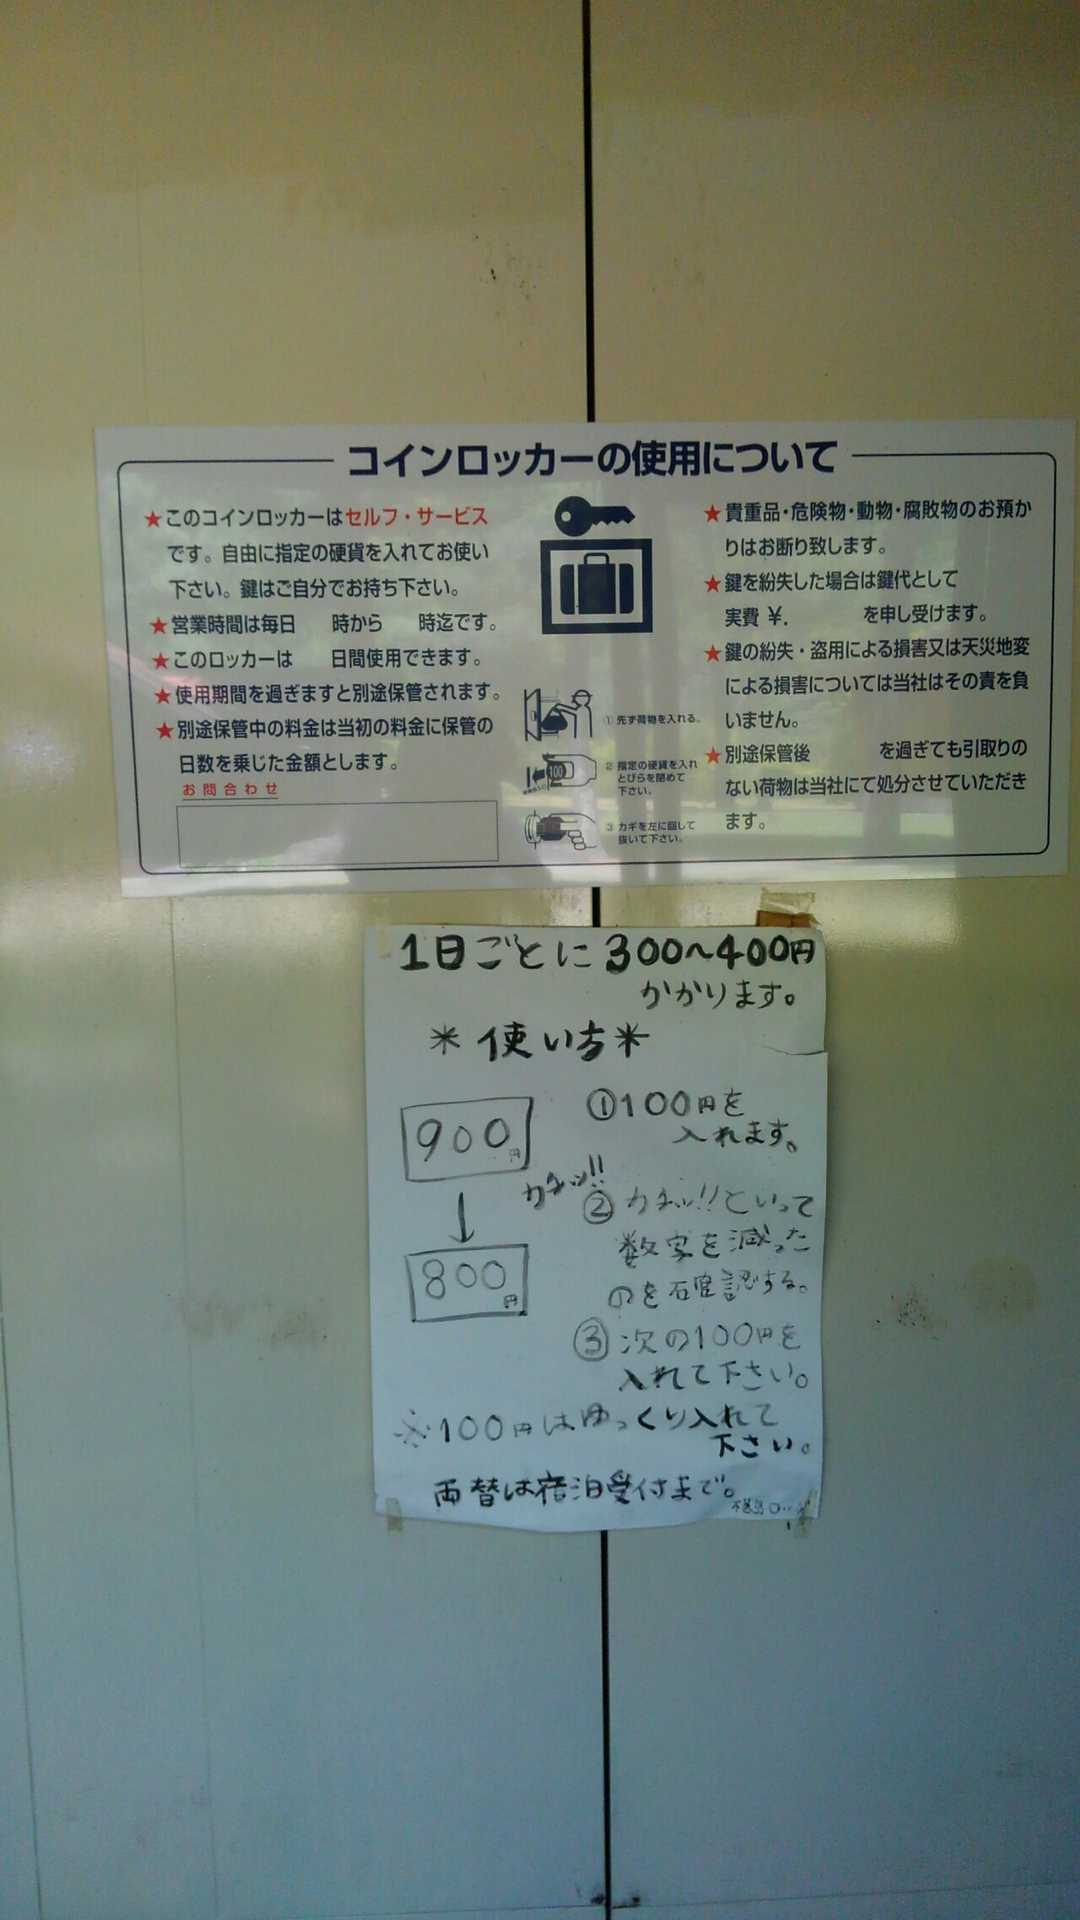 コインロッカーの使用について
★このコインロッカーはセルフ・サービス
です。自由に指定の硬貨を入れてお使い
下さい。鍵はご自分でお持ち下さい。
★営業時間は毎日　　時から　　時迄です。
★このロッカーは　　日間使用できます。
★使用期間を過ぎますと別途保管されます。
★別途保管中の料金は当初の料金に保管の
日数を乗じた金額とします。
お問合わせ
①先ず荷物を入れる。
②指定の硬貨を入れ
とびらを閉めて
下さい。
③カギを左に回して
抜いて下さい。
★貴重品・危険物・動物・腐敗物のお預か
りはお断り致します。
★鍵を紛失した場合は鍵代として
実費 ¥.　　　を申し受けます。
★鍵の紛失・盗用による損害又は天災地変
による損害については当社はその責を負
いません。
★別途保管後　　　を過ぎても引取りの
ない荷物は当社にて処分させていただき
ます。
1日ごとに300〜400円
かかります。
＊使い方＊
900円
カチッ!!
↓
800円
①100円を
入れます。
②カチッ!!といって
数字を減った
のを確認する。
③次の100円を
入れて下さい。
※100円はゆっくり入れて
下さい。
両替は宿泊受付まで。